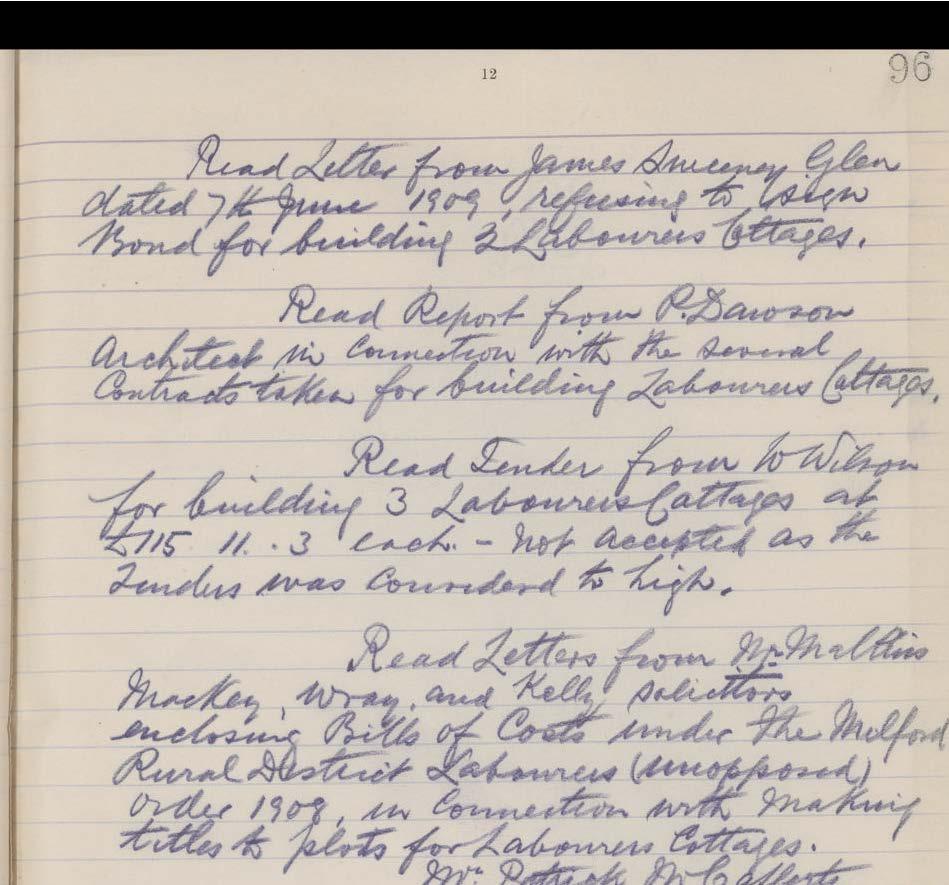 12
96
Read Letter from James Sweeney Glen
dated 7th June 1909, refusing to sign
Bond for building 3 Labourers Cottages.
Read Report from P. Dawson
Architect in Connection with the several
Contracts taken for building Labourers Cottages.
Read Tender from W Wilson
for building 3 Labourers Cottages at
£115 11. . 3 each. - Not accepted as the
Tenders was Considerd to high.
Read Letters from
Mackey, Wray, and Kelly solicitors
enclosing Bills of Costs under the Milford
Rural District Labourers (unopposed)
Order 1909, in Connection with Making
titles to plots for Labourers Cottages.
Mr Patrick